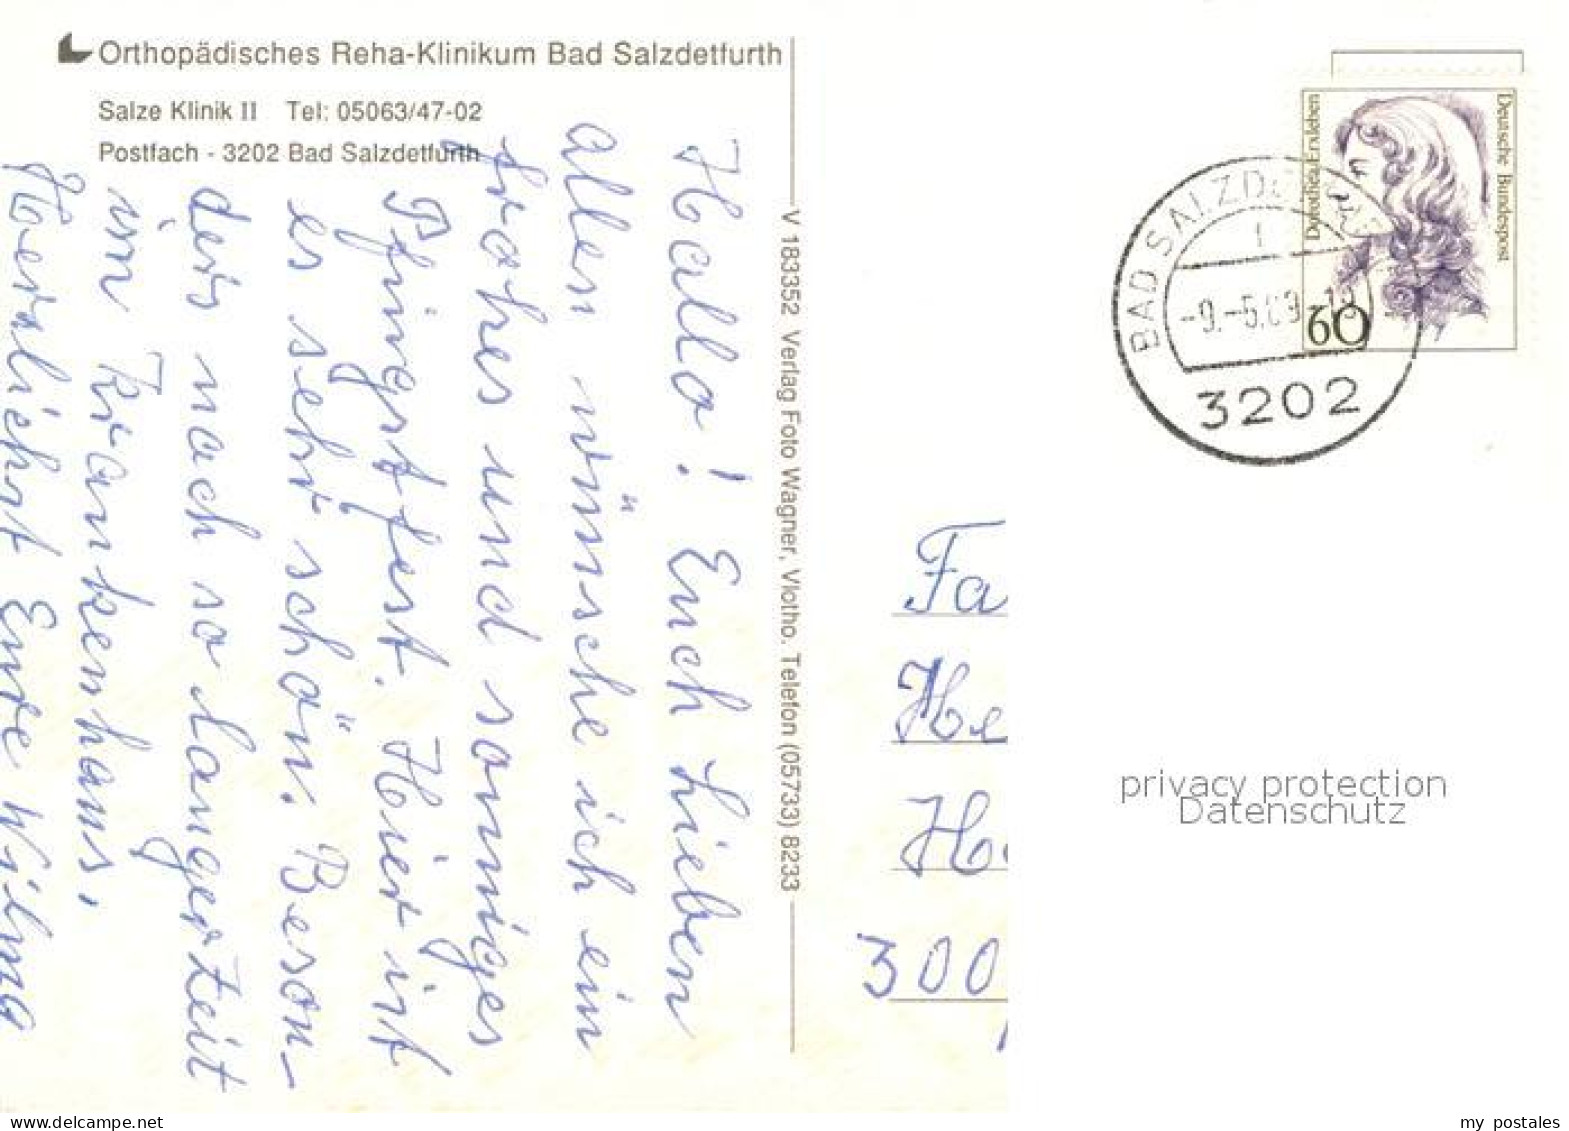 Orthopädisches Reha-Klinikum Bad Salzdetfurth
Salze Klinik II Tel: 05063/47-02
Postfach - 3202 Bad Salzdetfurth
Hallo! Euch Lieben
allen wünsche ich ein
frohes und sonniges
Pfingstfest. Hier ist
es sehr schön. Beson-
ders nach so langer Zeit
im Krankenhaus.
Herzlichst Eure Wilma
V 183352 Verlag Foto Wagner, Vlotho. Telefon (05733) 8233
Deutsche Bundespost
Dorothea Erxleben
60
BAD SALZDE
1
-9.-5.89-
3202
Fa
He
H
300
privacy protection
Datenschutz
www.delcampe.net
my_postales